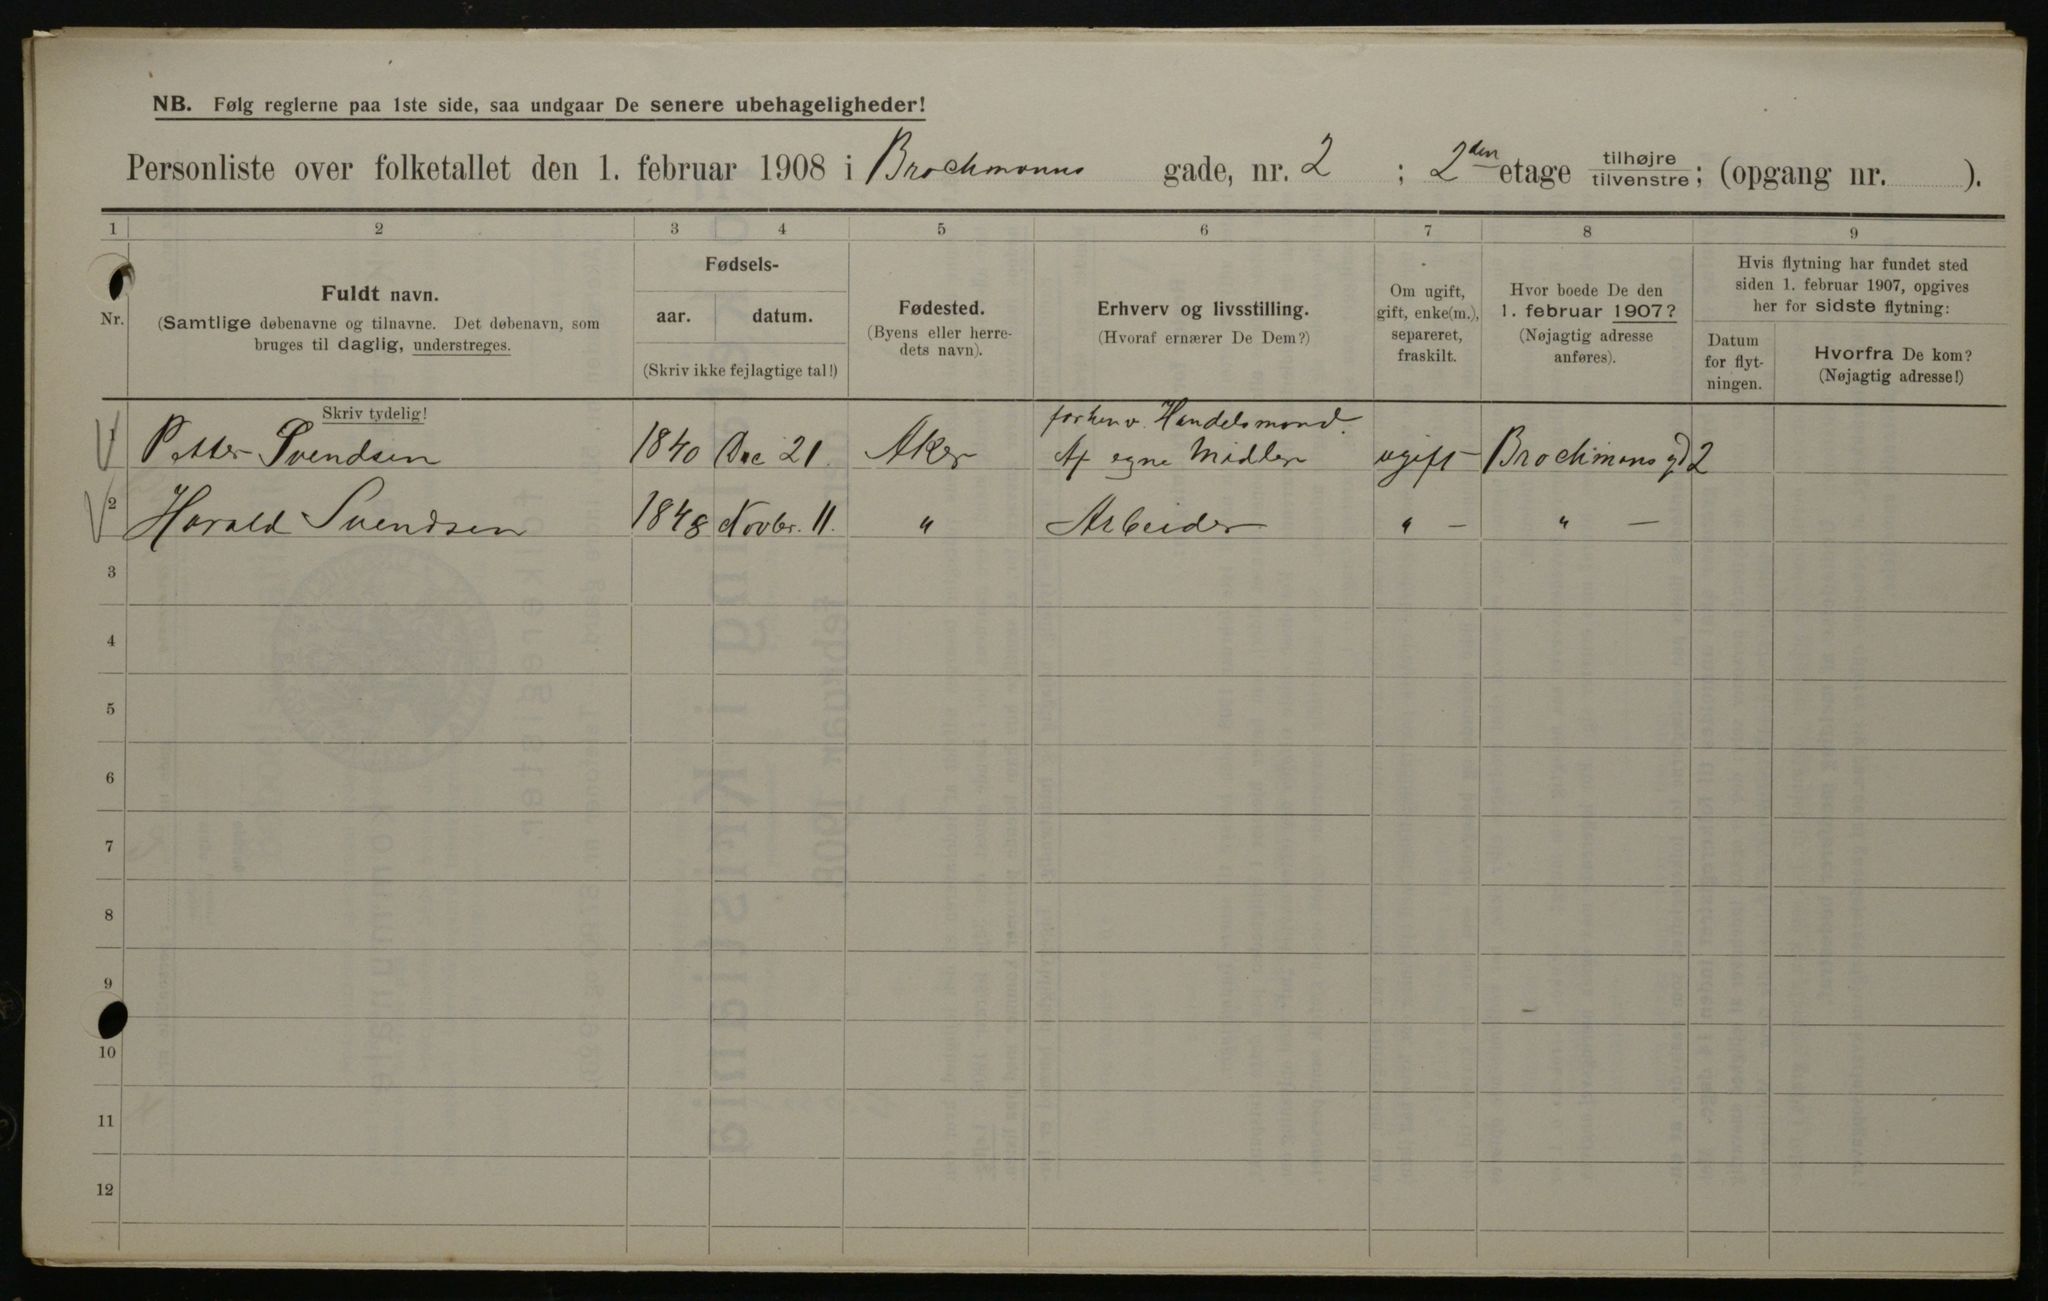 NB. Følg reglerne paa 1ste side, saa undgaar De senere ubehageligheder!
Personliste over folketallet den 1. februar 1908 i Brochmanns gade, nr. 2 ; 2den etage tilhøjre/tilvenstre; (opgang nr. ).
1 2 3 4 5 6 7 8 9
Nr.
Fuldt navn.
(Samtlige døbenavne og tilnavne. Det døbenavn, som
bruges til daglig, understreges.
Skriv tydelig!
Fødsels-
aar. datum.
(Skriv ikke fejlagtige tal!)
Fødested.
(Byens eller herre-
dets navn).
Erhverv og livsstilling.
(Hvoraf ernærer De Dem?)
Om ugift,
gift, enke(m.),
separeret,
fraskilt.
Hvor boede De den
1. februar 1907?
(Nøjagtig adresse
anføres).
Hvis flytning har fundet sted
siden 1. februar 1907, opgives
her for sidste flytning:
Datum
for flyt-
ningen.
Hvorfra De kom?
(Nøjagtig adresse!)
forhenv. Handelsmand.
1 Petter Svendsen 1840 Dec 21. Aker Af egne Midler ugift Brochmans gd 2
2 Harald Svendsen 1848 Novbr. 11. " Arbeider " — " —
3
4
5
6
7
8
9
10
11
12